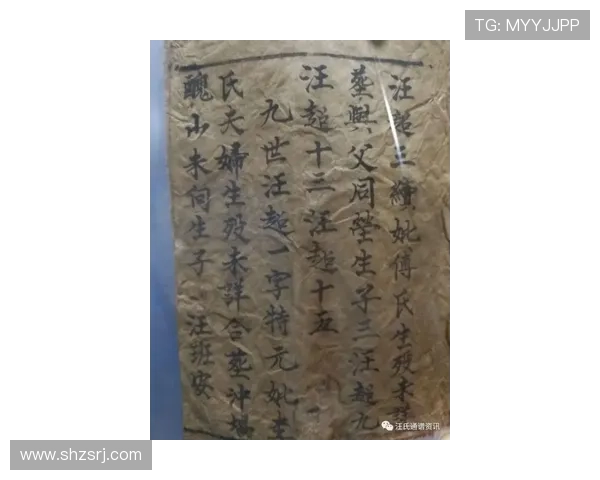 TG: MYYJJPP
汪超三續妣傅氏生歿未詳
葬與父同塋生子三汪超九
汪超十三汪超十五
九世汪超一字特元妣李
氏夫婦生歿未詳合葬沖塲
醜山未向生子 汪班安
汪氏通谱资讯
www.shzsrj.com